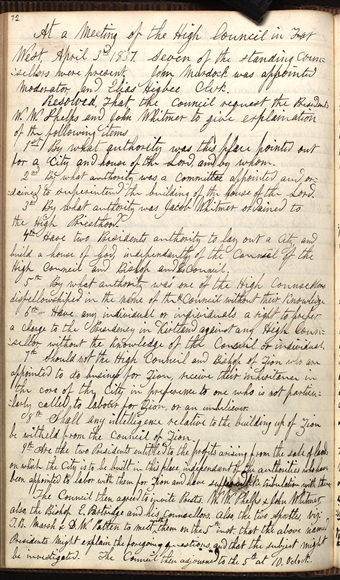 72
At a Meeting of the High Council in Far
West April 3d 1837. Seven of the standing Coun-
sellors were present. John Murdock was appointed
Moderator and Elias Higbee Clerk.
Resolved, That the council request the Presidents
W. W. Phelps and John Whitmer to give explaination
of the following items
1st By what authority was this place pointed out
for a City and house of the Lord and by whom.
2nd By what authority was a Committee appointed and or-
dained to superintend the building of the house of the Lord.
3d By what authority was Jacob Whitmer ordained to
the High Priesthood.
4th Have two Presidents authority to lay out a City and
build a house of God independantly of the Counsel of the
High Council and Bishop and Council,
5th By what authority was one of the High Counsellors
disfellowshiped in the name of the Council without their knowledge
6th Have any individual or individuals a right to prefer
a charge to the Presidency in Kirtland against any High Coun-
sellor without the knowledge of the Council or individual.
7th Should not the High Council and Bishop of Zion who are
appointed to do business for Zion, receive their inheritance in
the core of the City in preference to one who is not particu-
larly called to labour for Zion, or an unbeliever.
8th Shall any intelligence relative to the building up of Zion
be witheld from the Council of Zion.
9th Are the two Presidents entitled to the profits arising from the sale of lands
on which the City is to be built in this place independant of the authorities who have
been appointed to labor with them for Zion and have suffered with them
The Council then agreed to invite Prests. W. W. Phelps & John Whitmer,
also the Bishop E. Partridge and his counsellors Also the two apostles viz:
T. B. Marsh & D. W. Patten to meet them on the 5th inst. that the above named
Presidents might explain the foregoing questions and that the subject might
be investigated. The Council then adjourned to the 5th at 10. Oclock.